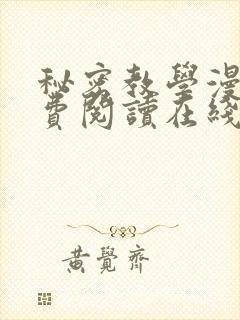 秘密教學漫
費閱讀在綫
黃覺齊